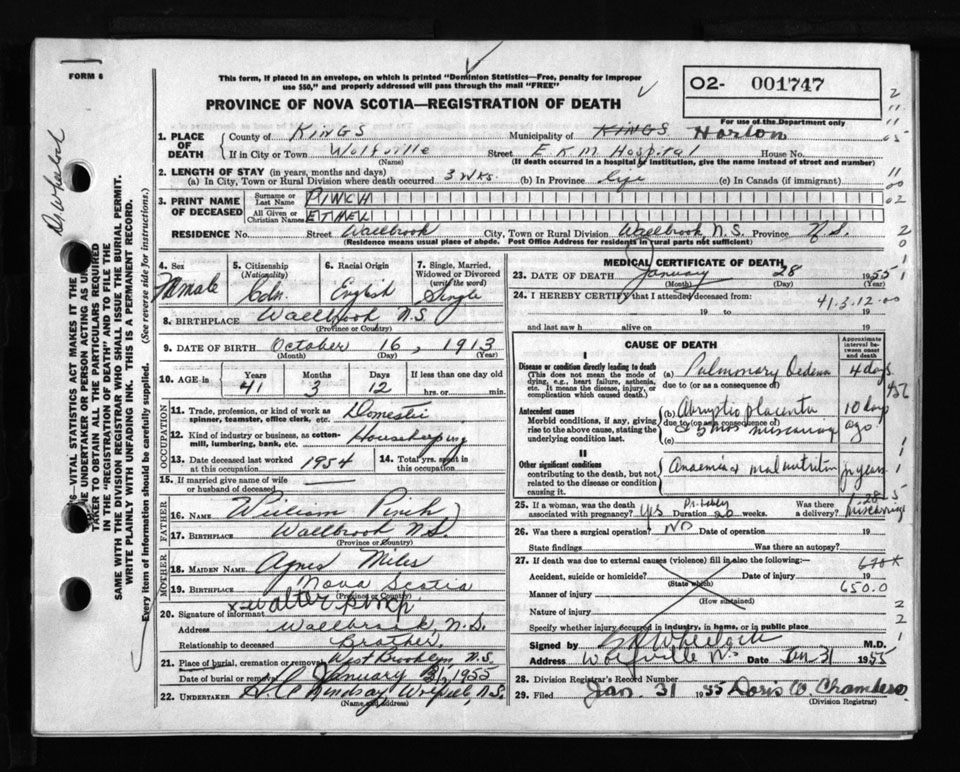 FORM 6
This form, if placed in an envelope, on which is printed "Dominion Statistics—Free, penalty for improper
use $50," and properly addressed will pass through the mail "FREE"
PROVINCE OF NOVA SCOTIA—REGISTRATION OF DEATH
O2- 001747
For use of the Department only
Dr Wheelock
S—VITAL STATISTICS ACT MAKES IT THE
UNDERTAKER OR PERSON ACTING AS UNDER-
TAKER TO OBTAIN ALL THE PARTICULARS REQUIRED
IN THE "REGISTRATION OF DEATH" AND TO FILE THE
SAME WITH THE DIVISION REGISTRAR WHO SHALL ISSUE THE BURIAL PERMIT.
WRITE PLAINLY WITH UNFADING INK. THIS IS A PERMANENT RECORD.
Every item of Information should be carefully supplied. (See reverse side for instructions.)
1. PLACE OF DEATH
County of KINGS Municipality of KINGS Horton
If in City or Town Wolfville Street E K M Hospital House No.
(Name) (If death occurred in a hospital or institution, give the name instead of street and number)
2. LENGTH OF STAY (in years, months and days)
(a) In City, Town or Rural Division where death occurred 3 wks. (b) In Province Life (c) In Canada (if immigrant)
3. PRINT NAME OF DECEASED
Surname or Last Name PINCH
All Given or Christian Names ETHEL
RESIDENCE No. Street Wallbrook City, Town or Rural Division Wallbrook, N.S. Province N.S.
(Residence means usual place of abode. Post Office Address for residents in rural parts not sufficient)
4. Sex Female
5. Citizenship (Nationality) Cdn.
6. Racial Origin English
7. Single, Married, Widowed or Divorced (write the word) Single
8. BIRTHPLACE Wallbrook N.S.
(Province or Country)
9. DATE OF BIRTH October 16, 1913
(Month) (Day) (Year)
10. AGE in Years 41 Months 3 Days 12 If less than one day old hrs. or min.
OCCUPATION
11. Trade, profession, or kind of work as spinner, teamster, office clerk, etc. Domestic
12. Kind of industry or business, as cotton-mill, lumbering, bank, etc. Housekeeping
13. Date deceased last worked at this occupation 1954
14. Total yrs. spent in this occupation
15. If married give name of wife or husband of deceased —
FATHER
16. NAME William Pinch
17. BIRTHPLACE Wallbrook N.S.
(Province or Country)
MOTHER
18. MAIDEN NAME Agnes Miles
19. BIRTHPLACE Nova Scotia
20. Signature of informant x Walter Pinch
Address Wallbrook N.S.
Relationship to deceased Brother
21. Place of burial, cremation or removal West Brooklyn, N.S.
Date of burial or removal January 31, 1955
22. UNDERTAKER Lindsay Wolfville, N.S.
(Name and address)
MEDICAL CERTIFICATE OF DEATH
23. DATE OF DEATH January 28 1955
(Month) (Day)
24. I HEREBY CERTIFY that I attended deceased from:
41.3.12.00
19 to 19
and last saw h alive on 19
CAUSE OF DEATH
Approximate interval between onset and death
I
Disease or condition directly leading to death
(This does not mean the mode of dying, e.g., heart failure, asthenia, etc. It means the disease, injury, or complication which caused death.)
(a) Pulmonary Oedema 4 days
due to (or as a consequence of)
Antecedent causes
Morbid conditions, if any, giving rise to the above cause, stating the underlying condition last.
(b) Abruptio placenta 10 days ago
due to (or as a consequence of)
5 mos miscarriage
(c)
II
Other significant conditions
contributing to the death, but not related to the disease or condition causing it.
Anaemia & malnutrition for years
25. If a woman, was the death associated with pregnancy? yes Duration Probably 20 weeks. Was there a delivery? miscarriage
26. Was there a surgical operation? NO Date of operation 19
State findings Was there an autopsy?
27. If death was due to external causes (violence) fill in also the following:—
Accident, suicide or homicide? Date of injury 19
(State which)
Manner of injury 650.0
(How sustained)
Nature of injury
Specify whether injury occurred in industry, in home, or in public place
Signed by Wheelock M.D.
Address Wolfville N.S. Date Jan 31 1955
28. Division Registrar's Record Number
29. Filed Jan. 31 1955 Doris W. Chambers
(Division Registrar)